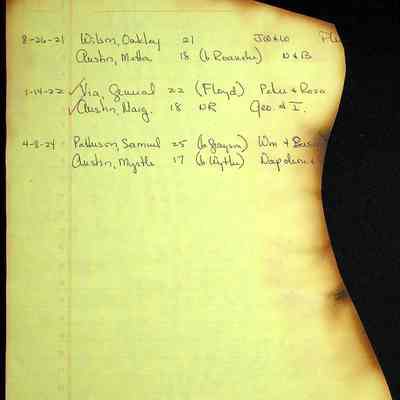 8-26-21 Wilson, Oakley 21 JW & W
Austin, Metha 18 (b Roanoke) N & B
1-14-22 Via, General 22 (Floyd) Peter & Rosa
Austin, Marg. 18 NR Geo. & I.
4-8-24 Patterson, Samuel 25 (b Grayson) Wm &
Austin, Myrtle 17 (b Wythe) Napoleon &